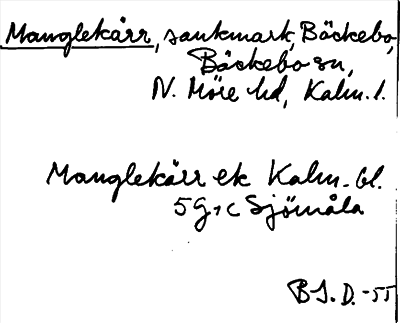 Manglekärr, sankmark, Böckebo,
Bäckebo sn,
N. Möre hd, Kalm. l.
Manglekärr ek Kalm. bl.
5 G 1 c Sjömåla
B.S.D. -55